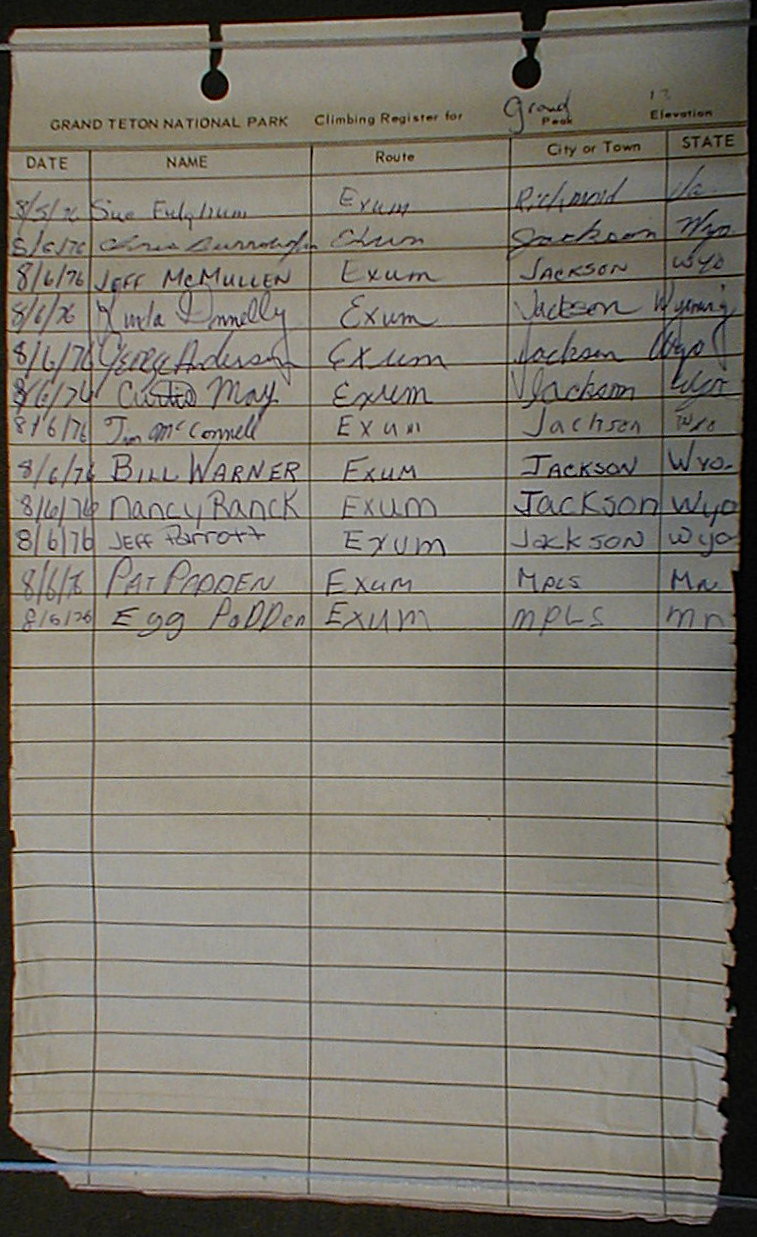 Grand
GRAND TETON NATIONAL PARK Climbing Register for Peak Elevation
DATE NAME Route City or Town STATE
8/5/76 Sue Fulghum Exum Richmond Va
8/6/76 Chris Exum Jackson Wyo
8/6/76 JEFF McMULLEN Exum JACKSON WYO
8/6/76 Linda Donnelly Exum Jackson Wyoming
8/6/76 George Anderson Exum Jackson Wyo
8/6/76 Curtis May Exum Jackson Wyo
8/6/76 Jim McConnell Exum Jackson Wyo
8/6/76 BILL WARNER EXUM JACKSON WYO.
8/6/76 Nancy Ranck EXUM Jackson Wyo
8/6/76 JEFF Parrott EXUM JACKSON Wyo
8/6/76 PAT PODDEN EXUM MPLS MN
8/6/76 Egg PoDDen EXUM MPLS mn